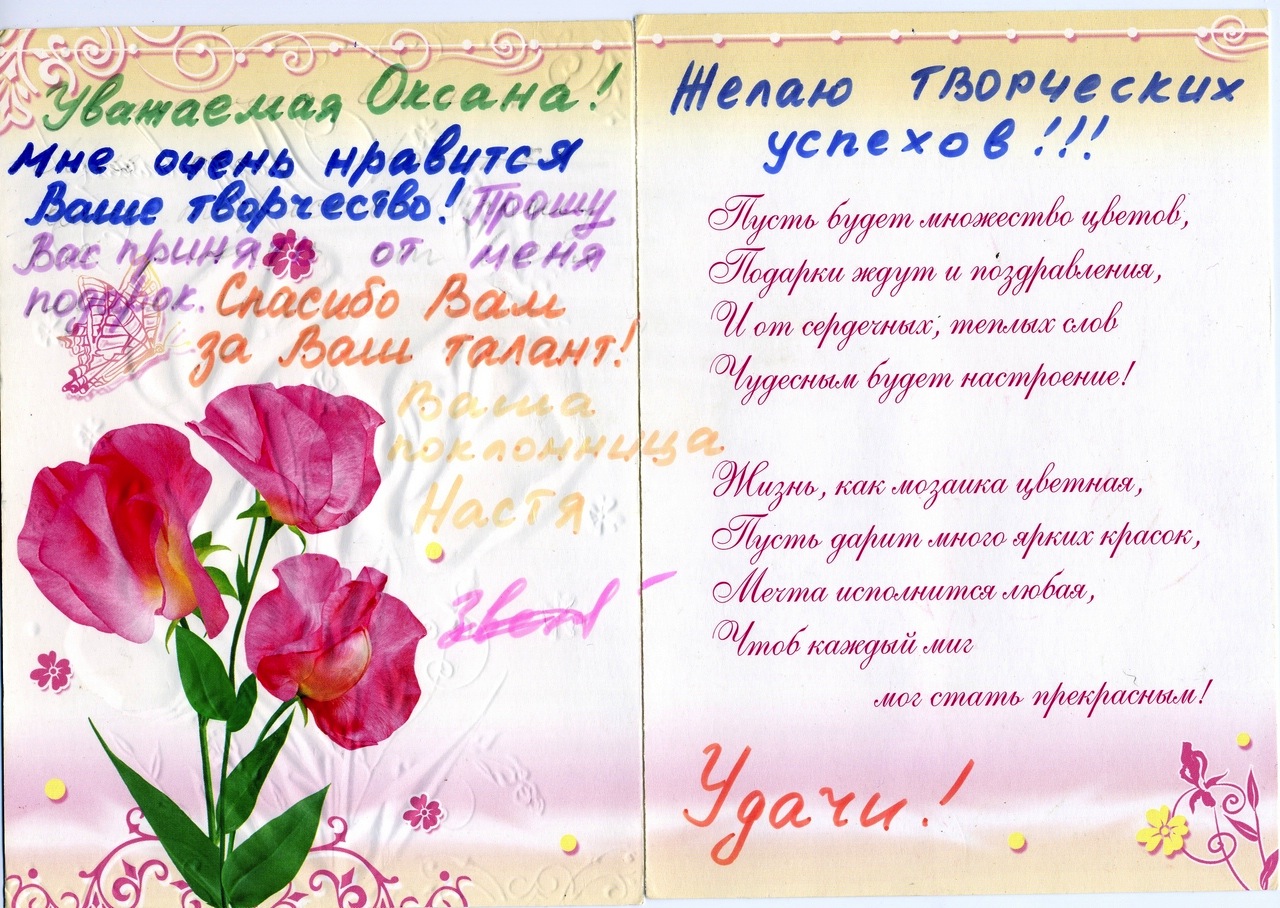 Уважаемая Оксана!
Мне очень нравится
Ваше творчество! Прошу
Вас принять от меня
подарок. Спасибо Вам
за Ваш талант!
Ваша
поклонница
Настя
Желаю творческих
успехов!!!
Пусть будет множество цветов,
Подарки ждут и поздравления,
И от сердечных, теплых слов
Чудесным будет настроение!
Жизнь, как мозаика цветная,
Пусть дарит много ярких красок,
Мечта исполнится любая,
Чтоб каждый миг
мог стать прекрасным!
Удачи!